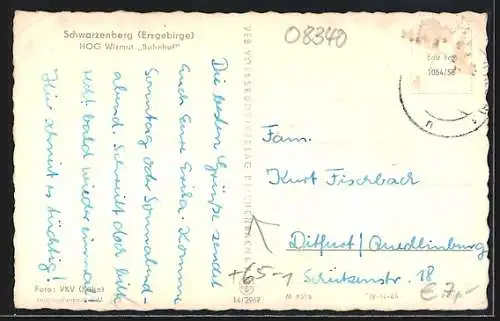 Schwarzenberg (Erzgebirge)
HOG Wismut „Bahnhof"
08340
Die besten Grüße sendet
Euch Eure Erika. Komme
Sonntag oder Sonnabend-
abend. Schreibt doch bitte
recht bald wieder einmal.
Hier schneit es tüchtig!
VEB VOLKSKUNSTVERLAG REICHENBACH
Fam.
Kurt Fischbach
Ditfurt/Quedlinburg
Schützenstr. 18
+65-1
€ 7,-
Foto: VKV (Hahn)
14/2967